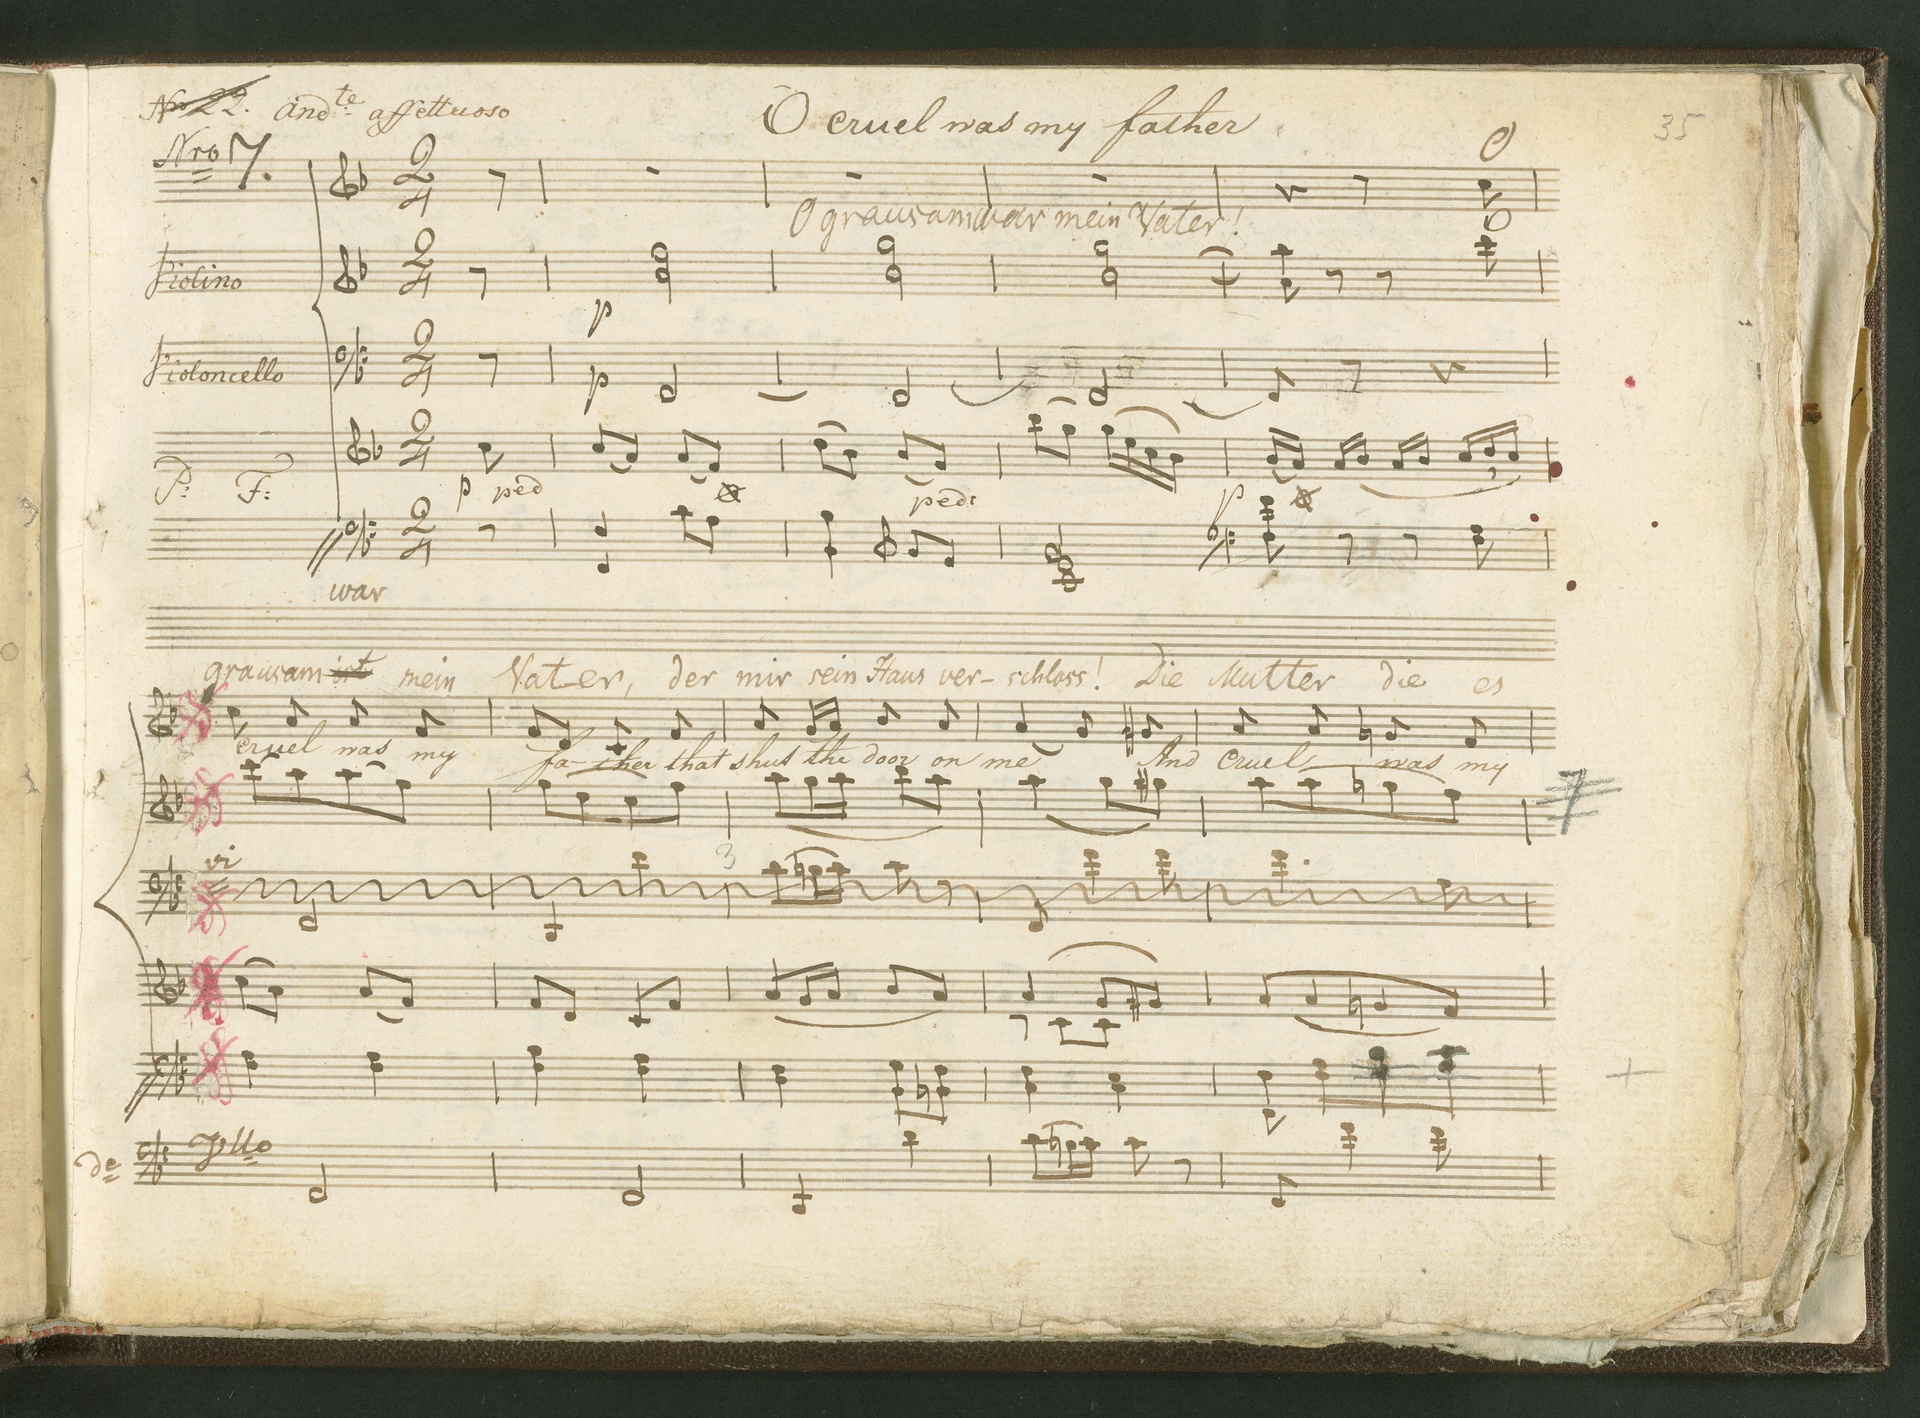 Nro 22. Andte affettuoso
O cruel was my father
35
Nro 7.
O
O grausam war mein Vater!
O
Violino
p
Violoncello
p
P: F:
p ped
ped:
p
war
grausam ist mein Vater, der mir sein Haus ver- schloss! Die Mutter die es
cruel was my fa- ther that shut the door on me And cruel was my
7
vi
3
de
Vllo